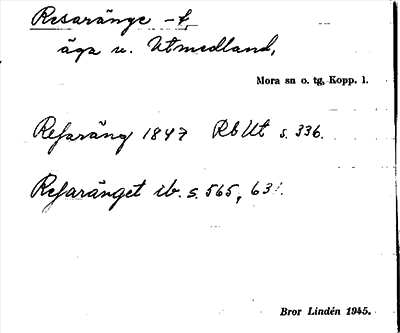 Resaränge -t,
äga u. Utmedland,
Mora sn o. tg, Kopp. l.
Refaräng 1847 RbUt s. 336.
Refaränget ib. s. 565, 63
Bror Lindén 1945.